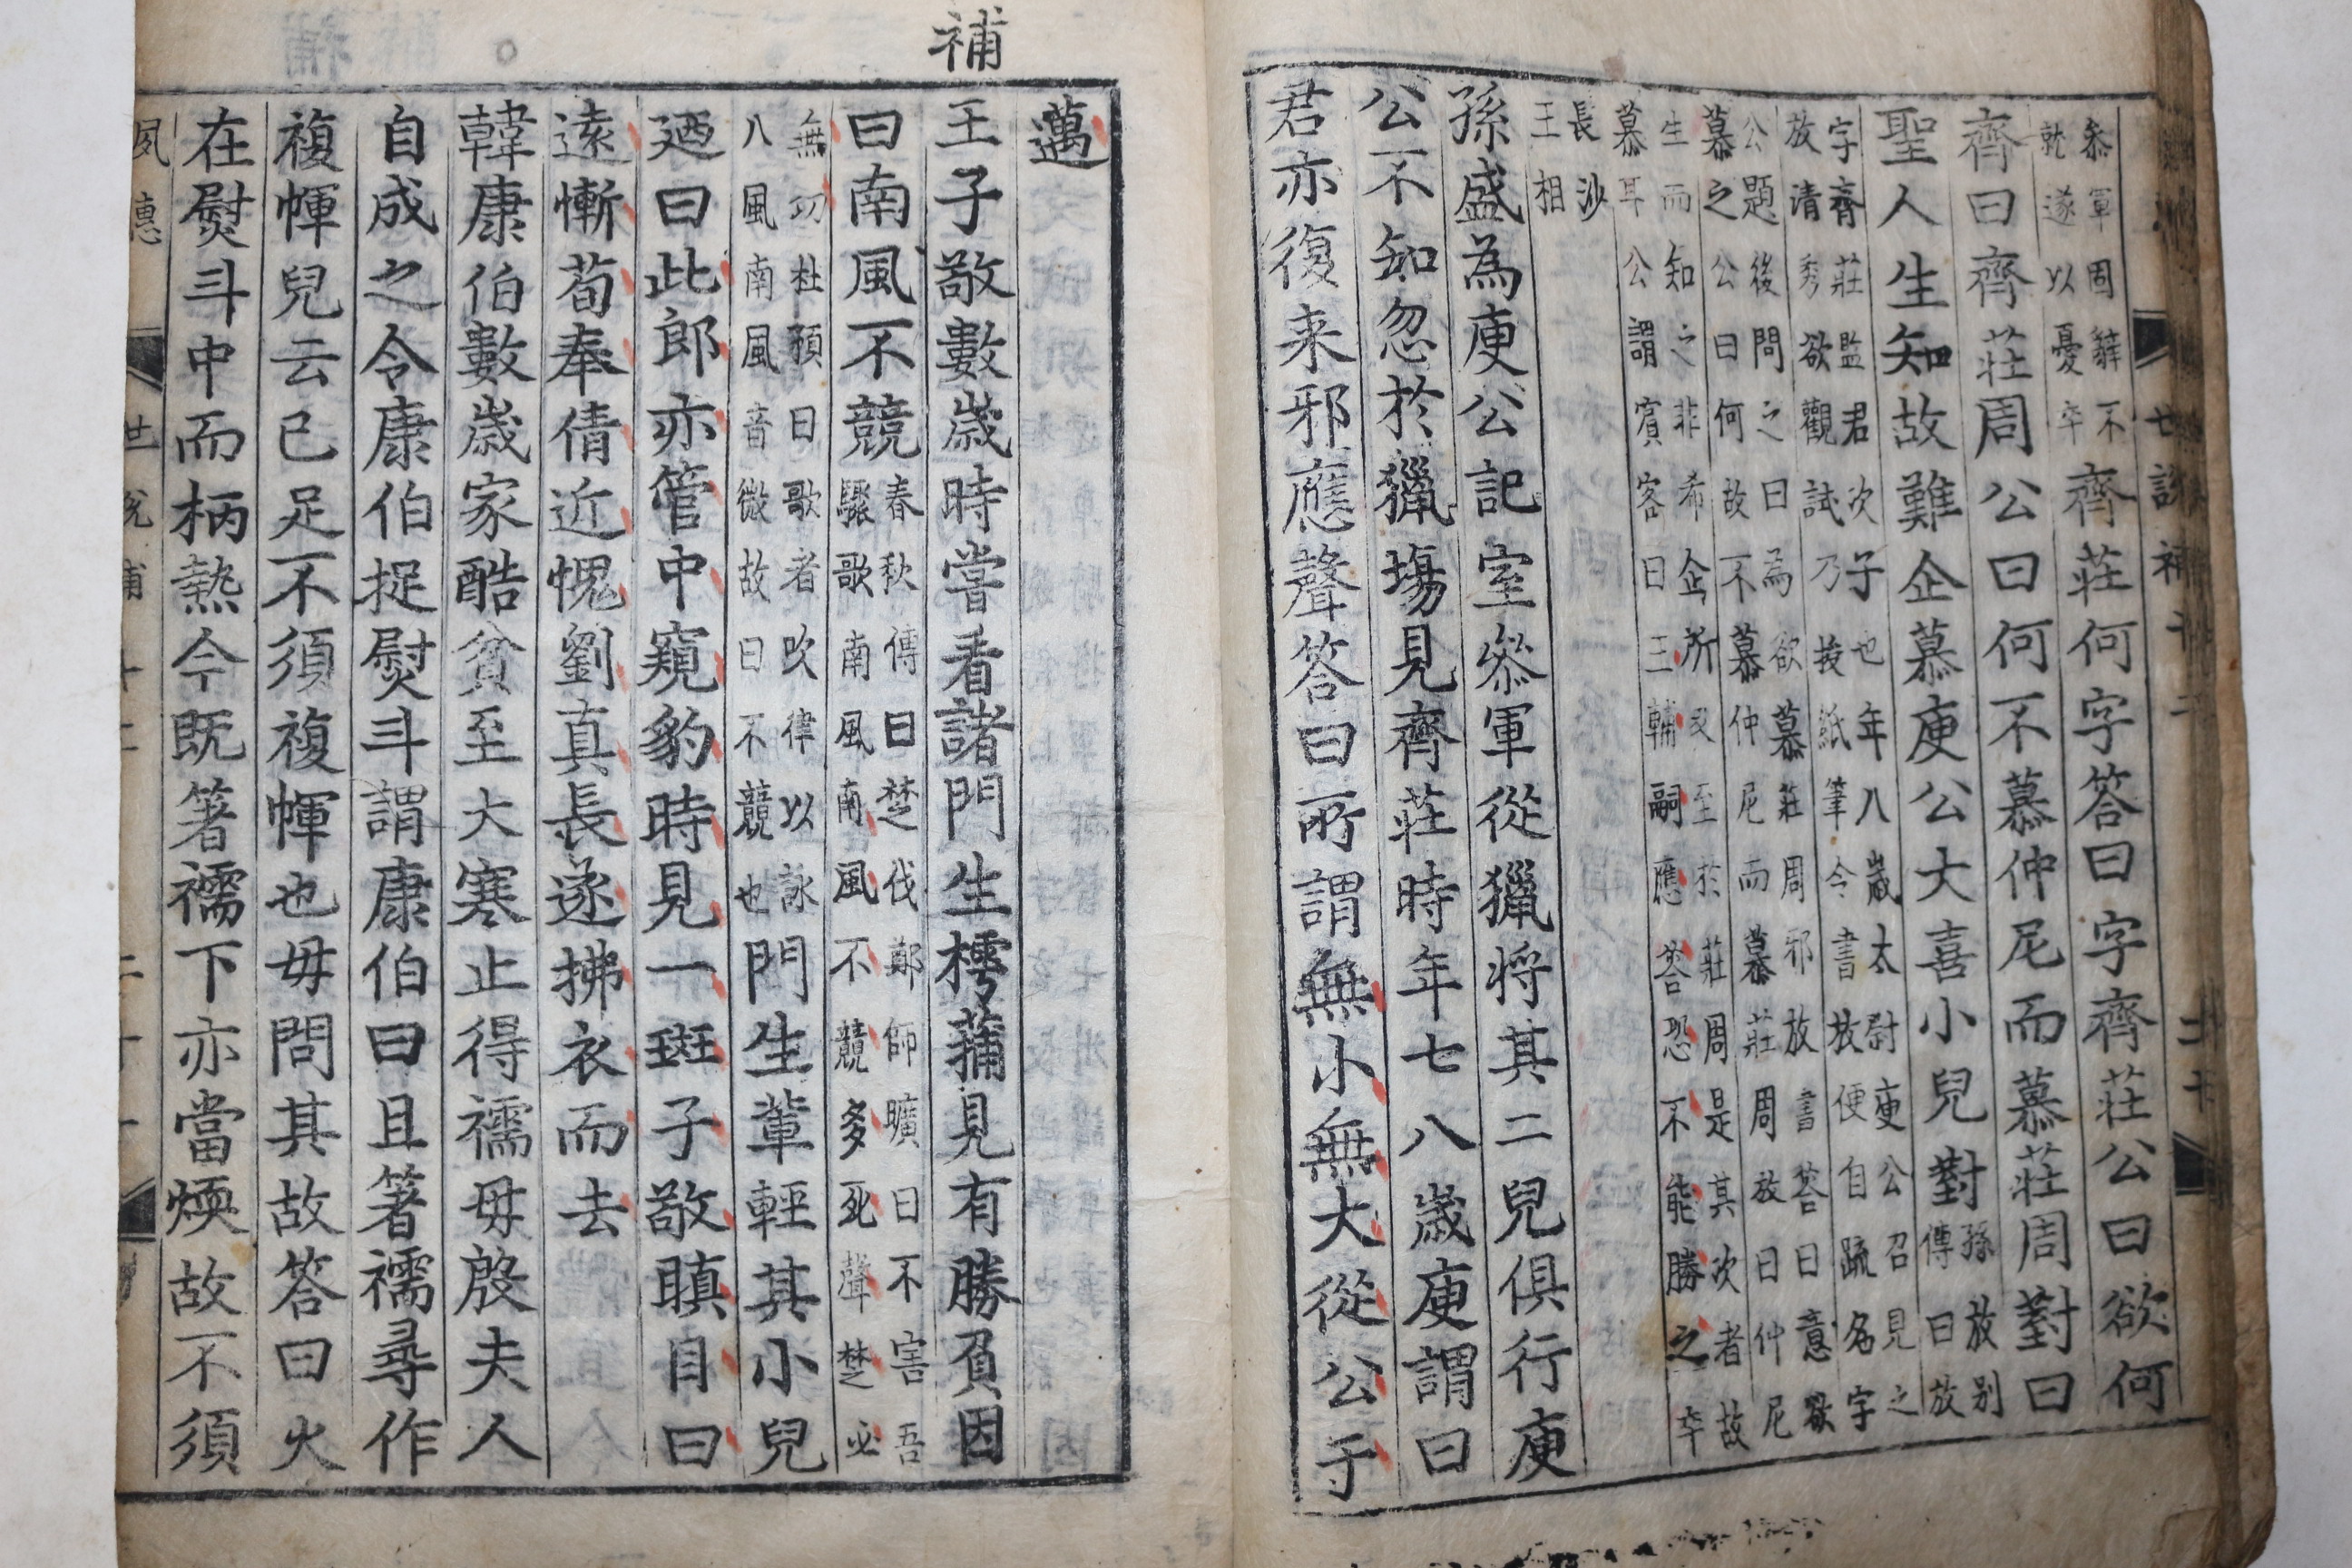 世說補十二　二十
叅軍固辭不
就遂以憂卒
齊莊何字答曰字齊莊公曰欲何
齊曰齊莊周公曰何不慕仲尼而慕莊周對曰
聖人生知故難企慕庾公大喜小兒對
孫放別
傳曰放
字齊莊監君次子也年八歲太尉庾公召見之
放清秀欲觀試乃授紙筆令書放便自疏名字
公題後問之曰為欲慕莊周邪放書答曰意欲
慕之公曰何故不慕仲尼而慕莊周放曰仲尼
生而知之非希企所及至於莊周是其次者故
慕耳公謂賓客曰王輔嗣應答恐不能勝之卒
長沙
王相
孫盛為庾公記室叅軍從獵將其二兒俱行庾
公不知忽於獵塲見齊莊時年七八歲庾謂曰
君亦復来邪應聲答曰所謂無小無大從公于
補
邁
王子敬數歲時嘗看諸門生樗蒱見有勝負因
曰南風不競
春秋傳曰楚伐鄭師曠曰不害吾
驟歌南風南風不競多死聲楚必
無功杜預曰歌者吹律以詠
八風南風音微故曰不競也
門生輩輕其小兒
廼曰此郎亦管中窺豹時見一斑子敬瞋目曰
遠慚荀奉倩近愧劉真長遂拂衣而去
韓康伯數歲家酷貧至大寒止得襦毋殷夫人
自成之令康伯捉熨斗謂康伯曰且著襦尋作
複㡓兒云已足不須複㡓也毋問其故答曰火
在熨斗中而柄熱今既著襦下亦當煗故不須
夙惠　世說補十二　二十一